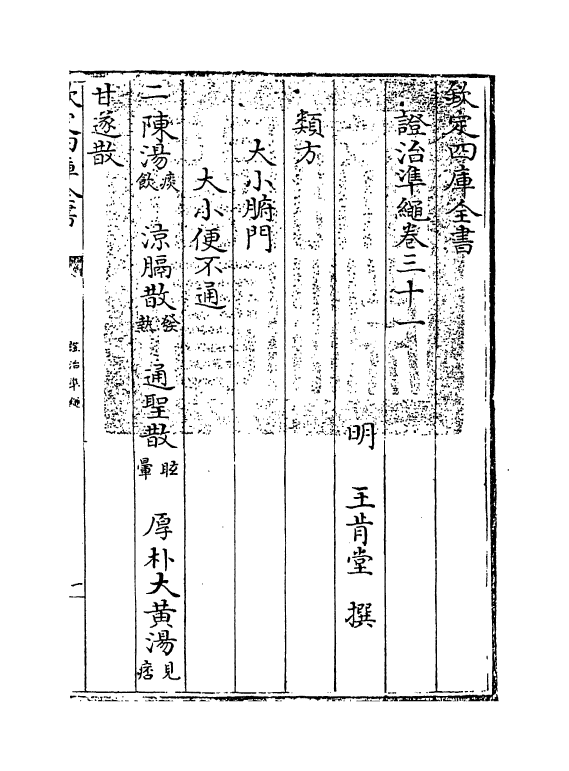 欽定四庫全書
證治準繩卷三十一
明 王肯堂 撰
類方
大小腑門
大小便不通
二陳湯痰飲 涼膈散發熱 通聖散眩暈 厚朴大黃湯見痞
甘遂散
欽定四庫全書 證治準繩 一